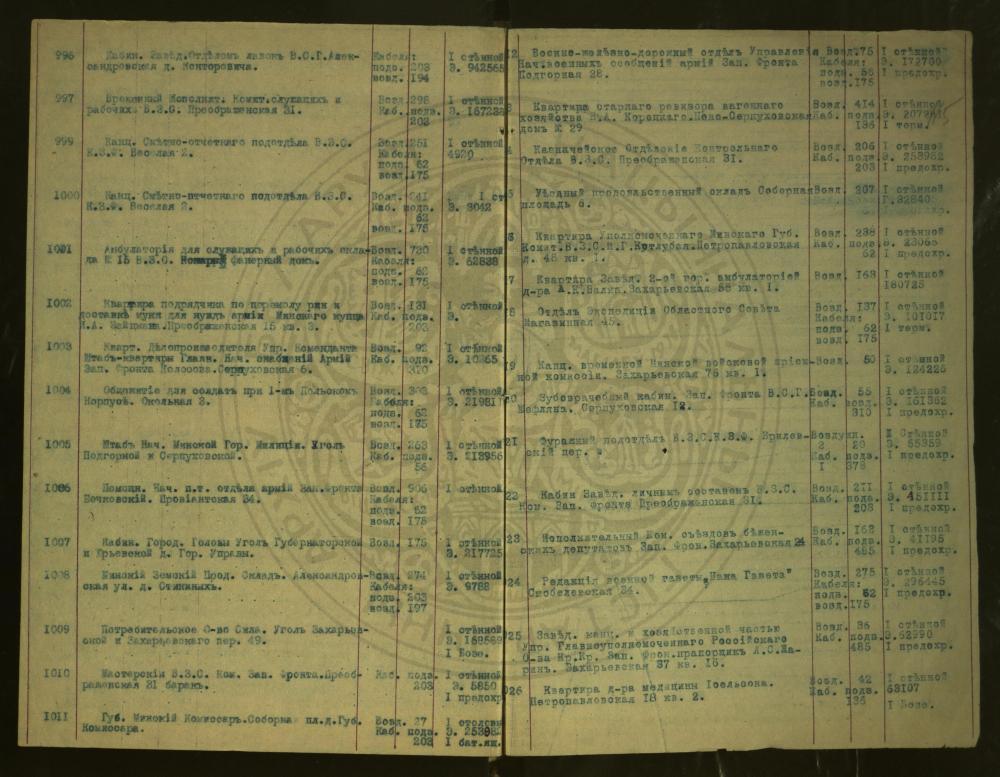 996 Кабин. Завѣд.Отдѣломъ лавокъ В.С.Г.Алек- Кабеля: I стѣнной
сандровская д. Конторовича. подв. 203 Э. 942565
возд. 194
997 Временный Исполнит. Комит.служащихъ и Возд.298 I стѣнной
рабочихъ В.З.С. Преображенская 31. Каб. подв.
203
999 Канц. Смѣтно-отчетнаго подотдѣла В.З.С. Возд.251 I стѣнной
К.З.Ф. Веселая 2. Кабеля: 4920
подв. 62
возд.175
1000 Канц. Смѣтно-отчетнаго подотдѣла В.З.С. Возд. 241
К.З.Ф. Веселая 2. Каб. подв. Э. 3042
62
возд. 175
1001 Амбулаторія для служащихъ и рабочихъ скла- Возд. 730 I стѣнной
да № 15 В.З.С. фанерный домъ. Кабеля: Э. 62838
подв. 62
возд. 175
1002 Квартира подрядчика по перемолу ржи и Возд. 131 I стѣнной
доставкѣ муки для нуждъ арміи Минскаго купца Каб. подв. Э.
Преображенская 15 кв. 3. 203
1003 Кварт. Дѣлопроизводителя Упр. Коменданта Возд. 92 I стѣнной
Штабъ-квартиры Главн. Нач. снабженій Армій Каб. подв. Э. 10265
Зап. Фронта Колосова.Серпуховская 6. 310
1004 Общежитіе для солдатъ при 1-мъ Польскомъ Возд. 303 I стѣнной
Корпусѣ. Скольная 3. Кабеля: Э. 21981
подв. 62
возд. 175
1005 Штабъ Нач. Минской Гор. Милиціи. Уголъ Возд. 263 I стѣнной
Подгорной и Серпуховской. Каб. подв. Э. 213956
56
1006 Помощн. Нач. п.т. отдѣла армій Зап.Фронта Возд. 906 I стѣнной
Бочковскій. Провіантская 34. Кабеля: Э.
подв. 62
возд. 175
1007 Кабин. Город. Головы Уголъ Губернаторской Возд. 175 I стѣнной
и Юрьевской д. Гор. Управы. Э. 217725
1008 Минскій Земскій Прод. Складъ. Александров- Возд. 274 I стѣнной
ская ул. д. Кабеля: Э. 9788
подв. 203
возд. 197
1009 Потребительское О-во Сила. Уголъ Захарьев- I стѣнной
ской и Захарьевскаго пер. 49. Э.
I Бозе.
1010 Мастерскія В.З.С. Ком. Зап. Фронта.Преоб- Каб. подв. I стѣнной
раженская 31 баракъ. 203 Э. 5850
I предохр
1011 Губ. Минскій Комиссаръ.Соборная пл.д.Губ. Возд. 27 I столовы
Комиссара. Каб. подв. Э. 25398
203 I бат.ящ.
12 Военно-желѣзно-дорожный отдѣлъ Управленія Возд.75 I стѣнной
Нач.военныхъ сообщеній армій Зап. Фронта Кабеля: Э. 172700
Подгорная 28. подв. 56 I предохр.
возд.175
3 Квартира старшаго ревизора вагоннаго Возд. 414 I стѣнной
хозяйства В.А. Корецкаго.Ново-Серпуховская Каб. подв. Э.
домъ № 29 136 I терм.
4 Казначейское Отдѣленіе Контрольнаго Возд. 206 I стѣнной
Отдѣла В.З.С. Преображенская 31. Каб. подв. Э. 253982
203 I предохр.
5 Уѣздный продовольственный складъ Соборная Возд. 207 I стѣнной
площадь 6. 32840
6 Квартира Уполномоченнаго Минскаго Губ. Возд. 238 I стѣнной
Комит.В.З.С.И.Г.Котлубая.Петропавловская Каб. подв. Э. 23065
д. 45 кв. 1. 62 I предохр.
7 Квартира Завѣд. 2-ой гор. амбулаторіей Возд. 163 I стѣнной
д-ра А.К.Валка.Захарьевская 58 кв. 1. 180725
8 Отдѣлъ Экспедиціи Областного Совѣта Возд. 137 I стѣнной
Магазинная 45. Кабеля: Э. 101017
подв. 62 I терм.
возд. 175
9 Канц. временной Минской войсковой пріем- Возд. 50 I стѣнной
ной комиссіи. Захарьевская 76 кв. 1. Э. 124225
20 Зубоврачебный кабин. Зап. Фронта В.С.Г. Возд. 55 I стѣнной
Серпуховская 12. Каб. возд. Э. 161362
310 I предохр.
21 Фуражный подотдѣлъ В.З.С.К.З.Ф. Ярилов- Воздушн. 2 Стѣнной
скій пер. 2 20 Э. 55359
Каб. подв. I предохр.
1 378
22 Кабин Завѣд. личнымъ составомъ В.З.С. Возд. 211 I стѣнной
Ком. Зап. Фронта Преображенская 31. Каб. подв. Э. 451111
203 I предохр.
23 Исполнительный Ком. съѣздовъ бѣжен- Возд. 162 I стѣнной
скихъ депутатовъ Зап. Фрон.Захарьевская 24 Каб. подв. Э. 41195
485 I предохр.
24 Редакція военной газеты „Наша Газета" Возд. 275 I стѣнной
Скобелевская 34. Кабеля: Э. 296445
подв. 62 I предохр.
возд.175
25 Завѣд. канц. и хозяйственной частью Возд. 36 I стѣнной
Упр. Главноуполномоченнаго Россійскаго Каб. подв. Э.62990
О-ва Кр.Кр. Зап. Фрон.прапорщикъ А.С.Ша- 485 I предохр.
ринъ. Захарьевская 37 кв. 16.
026 Квартира д-ра медицины Іоельсона. Возд. 42 I стѣнной
Петропавловская 18 кв. 2. Каб. подв. 63107
136 I Бозе.